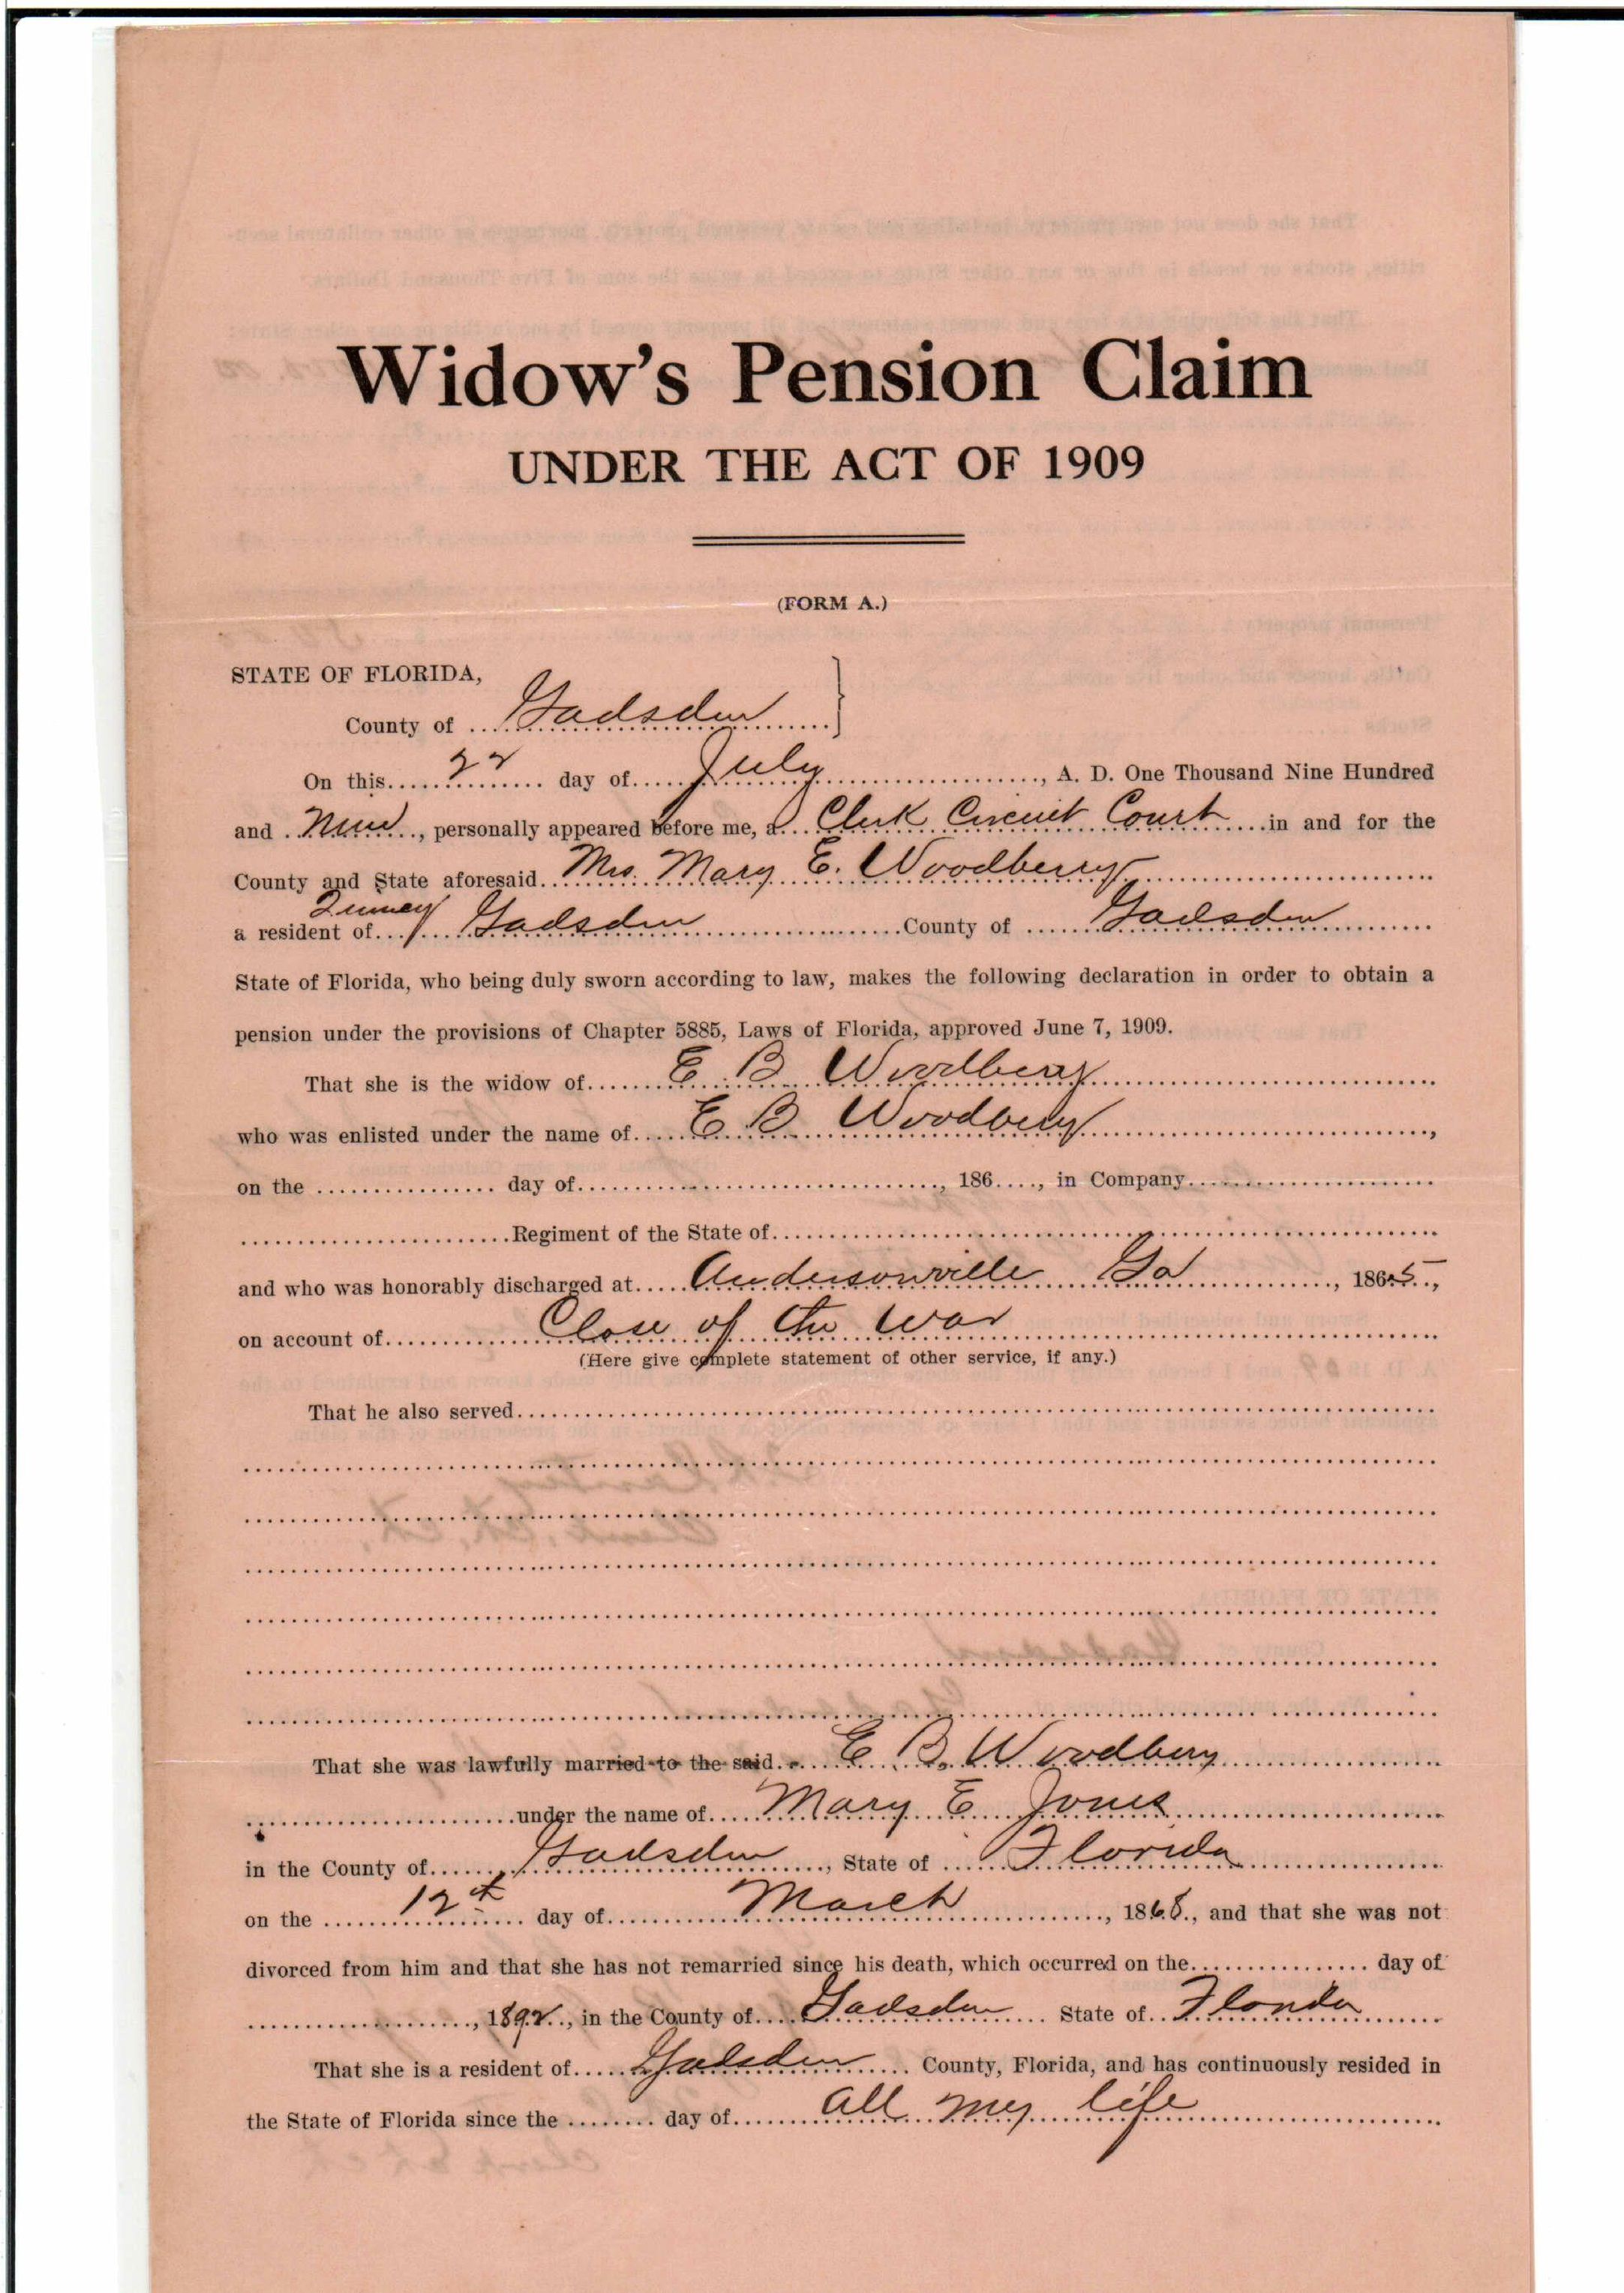 Widow's Pension Claim
UNDER THE ACT OF 1909
(FORM A.)
STATE OF FLORIDA,
County of Gadsden
On this 22 day of July, A. D. One Thousand Nine Hundred
and Nine, personally appeared before me, a Clerk Circuit Court in and for the
County and State aforesaid Mrs. Mary E. Woodberry
a resident of Gadsden County of Gadsden
State of Florida, who being duly sworn according to law, makes the following declaration in order to obtain a
pension under the provisions of Chapter 5885, Laws of Florida, approved June 7, 1909.
That she is the widow of E B Woodbery
who was enlisted under the name of E B Woodbery,
on the day of, 186, in Company
Regiment of the State of
and who was honorably discharged at Andersonville Ga, 1865,
on account of Close of the War
(Here give complete statement of other service, if any.)
That he also served
That she was lawfully married to the said E. B. Woodbery
under the name of Mary E Jones
in the County of Gadsden, State of Florida
on the 12th day of March, 1868, and that she was not
divorced from him and that she has not remarried since his death, which occurred on the day of
, 1892, in the County of Gadsden State of Florida
That she is a resident of Gadsden County, Florida, and has continuously resided in
the State of Florida since the day of all my life